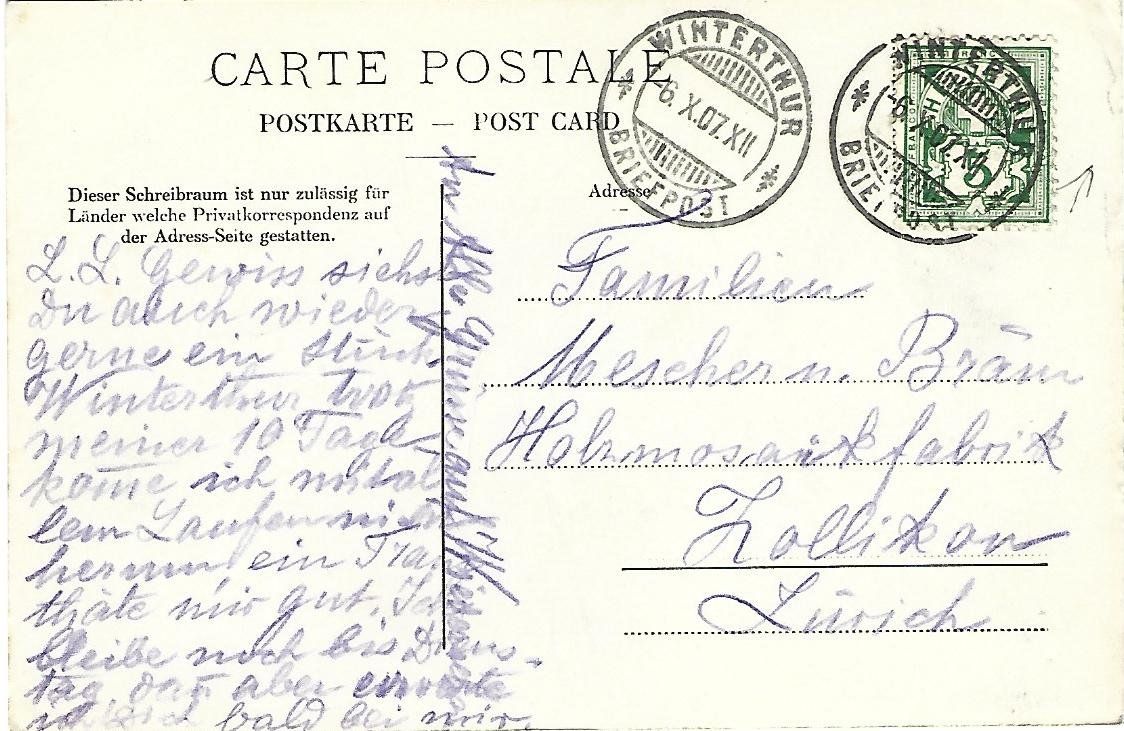 CARTE POSTALE
POSTKARTE — POST CARD
WINTERTHUR
-6. X. 07. XII
BRIEFPOST
WINTERTHUR
-6. X. 07. XII
BRIEFPOST
FRANCO
5
Dieser Schreibraum ist nur zulässig für
Länder welche Privatkorrespondenz auf
der Adress-Seite gestatten.
Adresse
L. L. Gewiss siehst
Du auch wieder
gerne ein Stück
Winterthur trotz
meiner 10 Tage
kom̄e ich mit al
lem Laufen nicht
herum, ein Tram
thäte mir gut. Ich
bleibe noch bis Diens-
tag, dan̄ aber erwarte
bald bei mir.
auf Wiedersehn
Familien
Mescher u. Bräm
Holzmosaikfabrik
Zollikon
Zürich